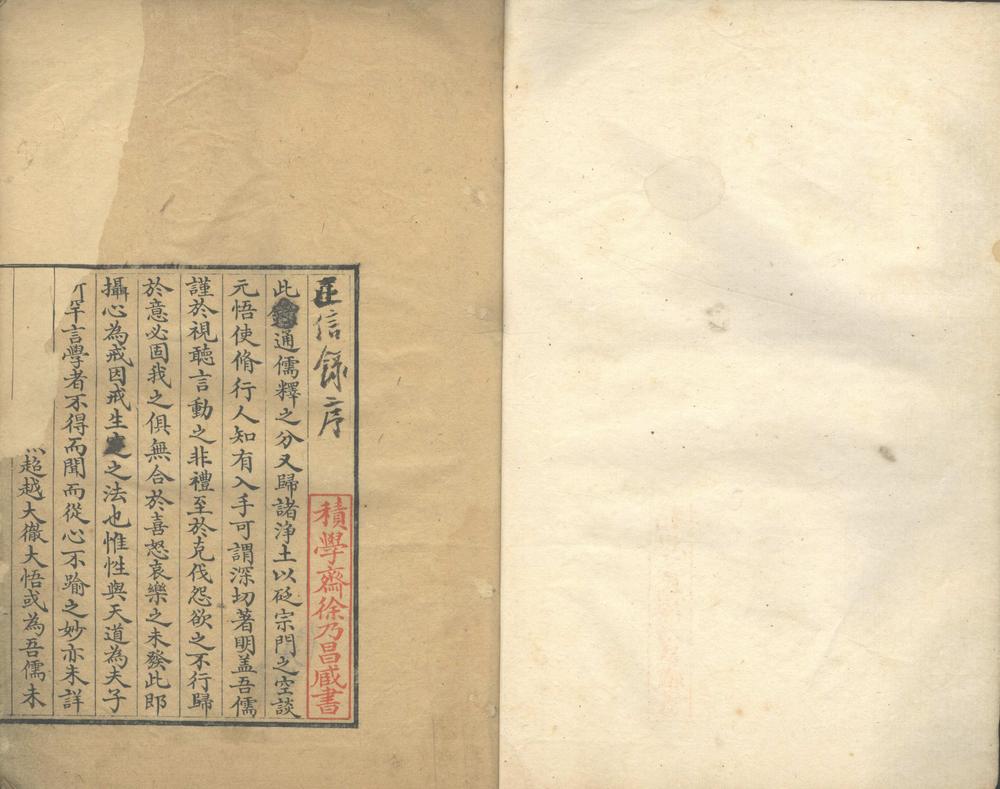 正信錄序
積學齋徐乃昌藏書
此錄通儒釋之分又歸諸淨土以砭宗門之空談
元悟使脩行人知有入手可謂深切著明盖吾儒
謹於視聽言動之非禮至於克伐怨欲之不行歸
於意必固我之俱無合於喜怒哀樂之未發此即
攝心為戒因戒生定之法也惟性與天道為夫子
罕言學者不得而聞而從心不踰之妙亦未詳
超越大徹大悟或為吾儒未